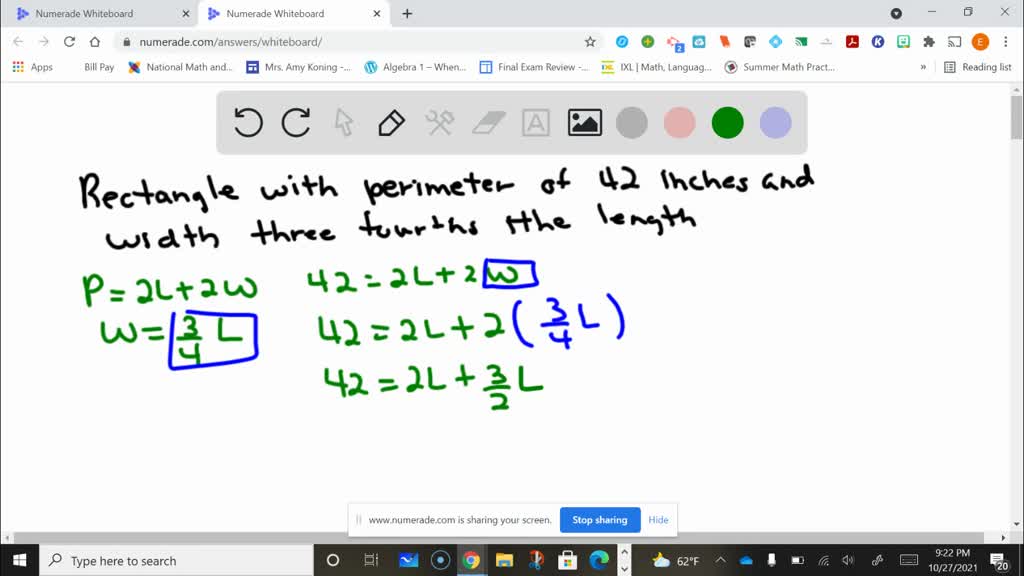 Numerade Whiteboard
Numerade Whiteboard
numerade.com/answers/whiteboard/
2
E
Apps Bill Pay National Math and... Mrs. Amy Koning -... Algebra 1 – When... Final Exam Review -... IXL | Math, Languag... Summer Math Pract... » Reading list
A
Rectangle with perimeter of 42 inches and
width three fourths the length
P = 2L + 2W
W = 3/4 L
42 = 2L + 2 W
42 = 2L + 2 (3/4 L)
42 = 2L + 3/2 L
www.numerade.com is sharing your screen. Stop sharing Hide
Type here to search
62°F
9:22 PM
10/27/2021
20